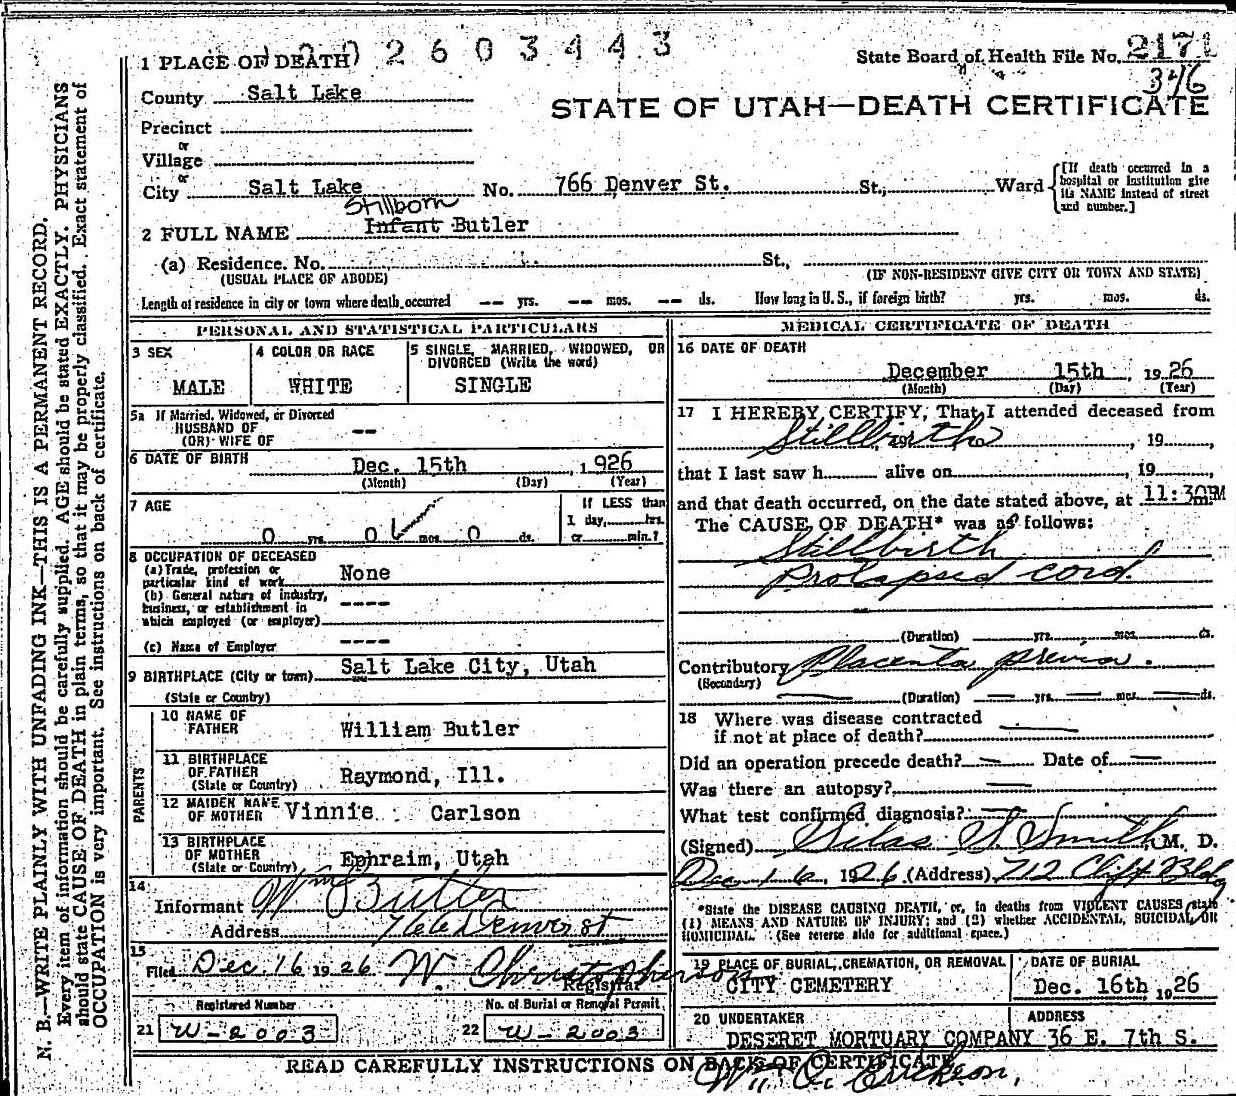 2603443
1 PLACE OF DEATH
State Board of Health File No. 2171
346
County Salt Lake
STATE OF UTAH—DEATH CERTIFICATE
Precinct
or
Village
or
City Salt Lake No. 766 Denver St. St., Ward
[If death occurred in a hospital or institution give its NAME instead of street and number.]
Stillborn
2 FULL NAME Infant Butler
(a) Residence. No. St.,
(USUAL PLACE OF ABODE) (IF NON-RESIDENT GIVE CITY OR TOWN AND STATE)
Length of residence in city or town where death occurred -- yrs. -- mos. -- ds. How long in U. S., if foreign birth? yrs. mos. ds.
N. B.—WRITE PLAINLY WITH UNFADING INK—THIS IS A PERMANENT RECORD.
Every item of information should be carefully supplied. AGE should be stated EXACTLY. PHYSICIANS
should state CAUSE OF DEATH in plain terms, so that it may be properly classified. Exact statement of
OCCUPATION is very important. See instructions on back of certificate.
PERSONAL AND STATISTICAL PARTICULARS
3 SEX
MALE
4 COLOR OR RACE
WHITE
5 SINGLE, MARRIED, WIDOWED, OR
DIVORCED (Write the word)
SINGLE
5a If Married, Widowed, or Divorced
HUSBAND OF
(OR) WIFE OF --
6 DATE OF BIRTH
Dec. 15th 1926
(Month) (Day) (Year)
7 AGE
0 yrs. 0 mos. 0 ds.
If LESS than
1 day, hrs.
or min.?
8 OCCUPATION OF DECEASED
(a) Trade, profession or
particular kind of work None
(b) General nature of industry,
business, or establishment in
which employed (or employer) ----
(c) Name of Employer ----
9 BIRTHPLACE (City or town) Salt Lake City, Utah
(State or Country)
PARENTS
10 NAME OF
FATHER William Butler
11 BIRTHPLACE
OF FATHER
(State or Country) Raymond, Ill.
12 MAIDEN NAME
OF MOTHER Vinnie Carlson
13 BIRTHPLACE
OF MOTHER
(State or Country) Ephraim, Utah
14
Informant Wm Butler
Address 766 Denver st
15
Filed Dec. 16 1926 W. Christopherson
Registrar
Registered Number
21 W-2003
No. of Burial or Removal Permit
22 W-2003
MEDICAL CERTIFICATE OF DEATH
16 DATE OF DEATH
December 15th, 1926
(Month) (Day) (Year)
17 I HEREBY CERTIFY, That I attended deceased from
Stillbirth, 19 ,
that I last saw h alive on 19 ,
and that death occurred, on the date stated above, at 11:30PM
m.
The CAUSE OF DEATH* was as follows:
Stillbirth
Prolapsed cord.
(Duration) yrs. mos. ds.
Contributory Placenta previa.
(Secondary)
(Duration) — yrs. — mos. — ds.
18 Where was disease contracted
if not at place of death?
Did an operation precede death? — Date of —
Was there an autopsy? —
What test confirmed diagnosis? —
(Signed) Silas S. Smith, M. D.
Dec 16, 1926 (Address) 712 Cliff Bldg
*State the DISEASE CAUSING DEATH, or, in deaths from VIOLENT CAUSES, state
(1) MEANS AND NATURE OF INJURY; and (2) whether ACCIDENTAL, SUICIDAL, OR
HOMICIDAL. (See reverse side for additional space.)
19 PLACE OF BURIAL, CREMATION, OR REMOVAL
CITY CEMETERY
DATE OF BURIAL
Dec. 16th 1926
20 UNDERTAKER
ADDRESS
DESERET MORTUARY COMPANY 36 E. 7th S.
READ CAREFULLY INSTRUCTIONS ON BACK OF CERTIFICATE